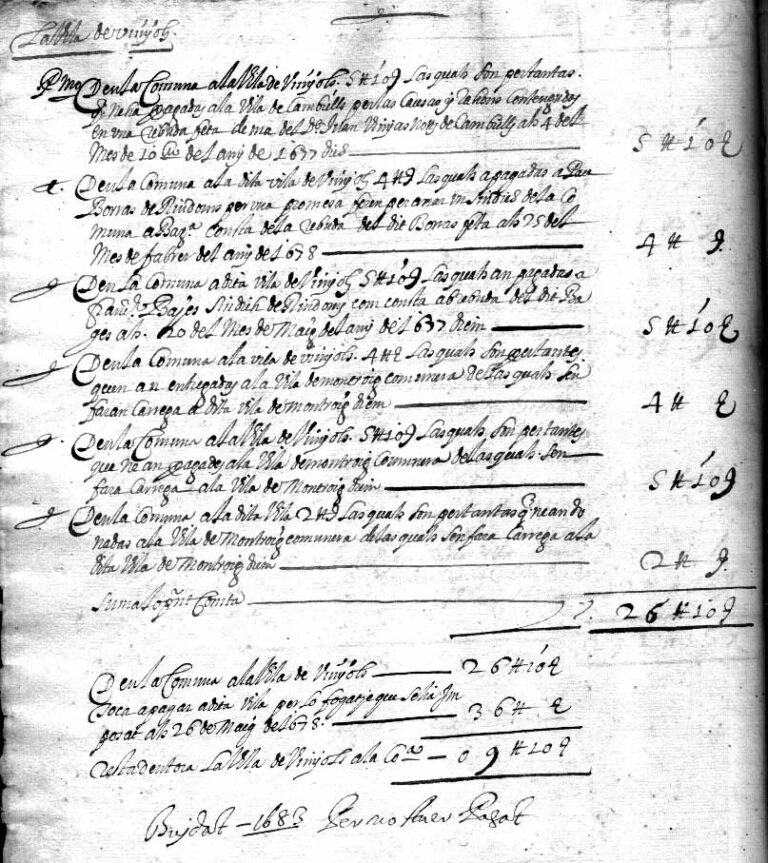 La Vila de Vinyols.
Pmo Deu la Comuna a la Vila de Vinyols. 5 # 10 9 Las quals son per tantas
pagadas a la Vila de Cambrils per las Causas y Rahons Contengudas
en una rebuda feta de ma del Dr Juan Vinyas Noty de Cambrils als 4 del
Mes de 10bre del any de 1677 dies
5 # 10 9
Deu la Comuna a la dita vila de Vinyols 4 # 9 Las quals a pagadas a Pau
Borras de Riudoms per una promesa feren per anar un Sindich de la Co
muna a Barna consta de la rebuda del dit Borras feta als 25 del
Mes de fabrer del any de 1678
4 # 9
Deu la Comuna a dita Vila de Vinyols 5 # 10 9 Las quals an pagadas a
Bages Sindich de Riudoms com consta ab rebuda del dit Ba
ges als 20 del Mes de Maig del any de 1677 diem
5 # 10 9
Deu la Comuna a la vila de vinyols. 4 # 9 Las quals son per tantes
queen an entregadas a la Vila de montroig comunera de las quals sen
faran Carrega a dita Vila de Montroig diem
4 # 9
Deu la Comuna a la Vila de Vinyols. 5 # 10 9 Las quals son per tantes
que ne an pagades a la Vila de montroig Comunera de las quals sen
fara Carrega a la Vila de Montroig diem
5 # 10 9
Deu la Comuna a la dita Vila 2 # 9 Las quals son per tantas q ne an do
nadas a la Vila de Montroig comunera de las quals sen fara Carrega a la
dita Vila de Montroig diem
2 # 9
Suma lo pnt Comta
26 # 10 9
Deu la Comuna a la Vila de Vinyols
26 # 10 9
Toca a pagar a dita Vila per lo fogatje que Selia Im
posat als 26 de Maig del 678.
36 # 9
Resta deutora La Vila de Vinyols a la Coa
09 # 10 9
1683 Per no aver Pagat